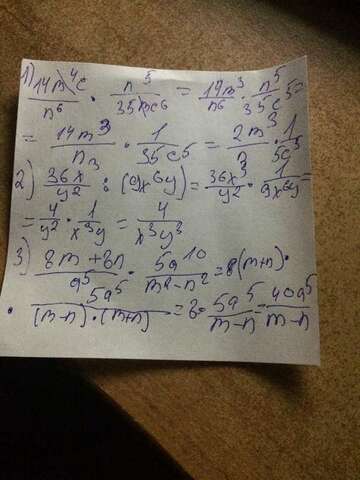 1) 14m⁴c/n⁶ · n⁵/35mc⁶ = 14m³/n⁶ · n⁵/35c⁵ =
= 14m³/n · 1/35c⁵ = 2m³/n · 1/5c³
2) 36x³/y² : (9x⁶y) = 36x³/y² · 1/9x⁶y =
= 4/y² · 1/x³y = 4/x³y³
3) 8m + 8n/a⁵ · 5a¹⁰/m² - n² = 8(m+n) ·
· 5a⁵/(m-n)·(m+n) = 8 · 5a⁵/m-n = 40a⁵/m-n